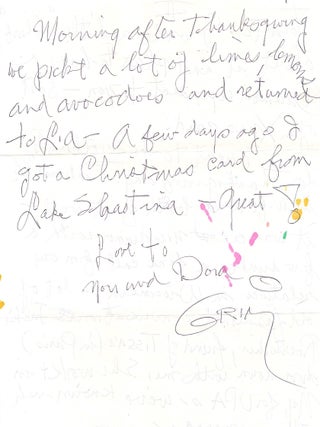 Morning after Thanksgiving
we pickt a lot of limes, lemons
and avocodoes and returned
to L.A - A few days ago I
got a Christmas card from
Lake Sbastina - Great!
Love to
you and Dora
GRIM